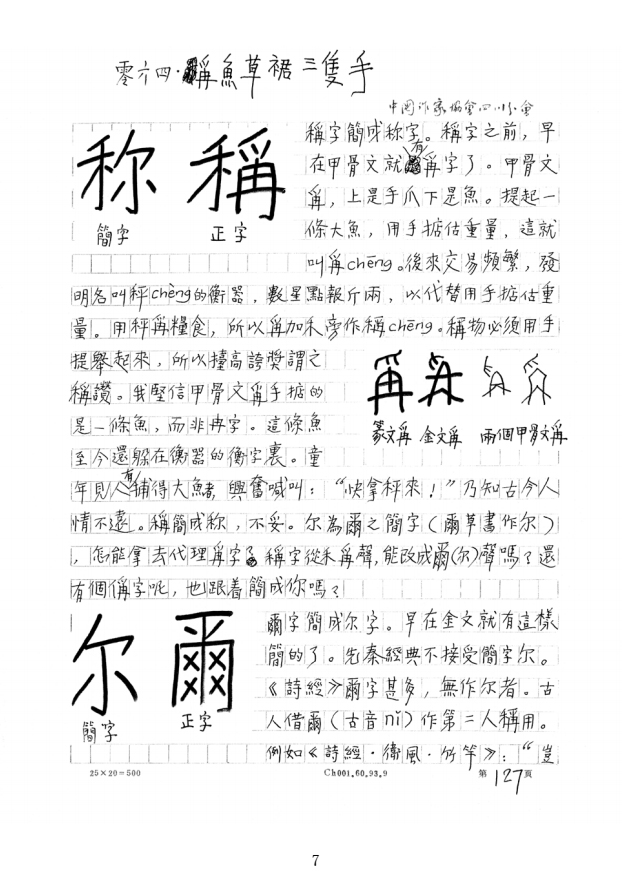 零六四·稱魚草裙三隻手
中国作家協會四川分會
称 稱
簡字 正字
稱字簡成称字。稱字之前，早
在甲骨文就有爯字了。甲骨文
爯，上是手爪下是魚。提起一
條大魚，用手掂估重量，這就
叫爯chēng。後來交易頻繁，發
明名叫秤chèng的衡器，數星點報斤兩，以代替用手掂估重
量。用秤爯糧食，所以爯加禾旁作稱chēng。稱物必須用手
提舉起來，所以擡高誇獎謂之
稱讚。我堅信甲骨文爯手掂的
是一條魚，而非冉字。這條魚
至今還躲在衡器的衡字裏。童
爯
篆文爯 金文爯 兩個甲骨文爯
年見有人捕得大魚者，興奮喊叫：“快拿秤來！”乃知古今人
情不遠。稱簡成称，不妥。尔為爾之簡字（爾草書作尔）
，怎能拿去代理爯字？稱字從禾爯聲，能改成爾(尔)聲嗎？還
有個偁字呢，也跟着簡成你嗎？
尔 爾
簡字 正字
爾字簡成尔字。早在金文就有這樣
簡的了。先秦經典不接受簡字尔。
《詩經》爾字甚多，無作尔者。古
人借爾（古音nǐ）作第二人稱用。
例如《詩經·衛風·竹竿》：“豈
25×20=500 Ch001.60.93.9 第127頁
7